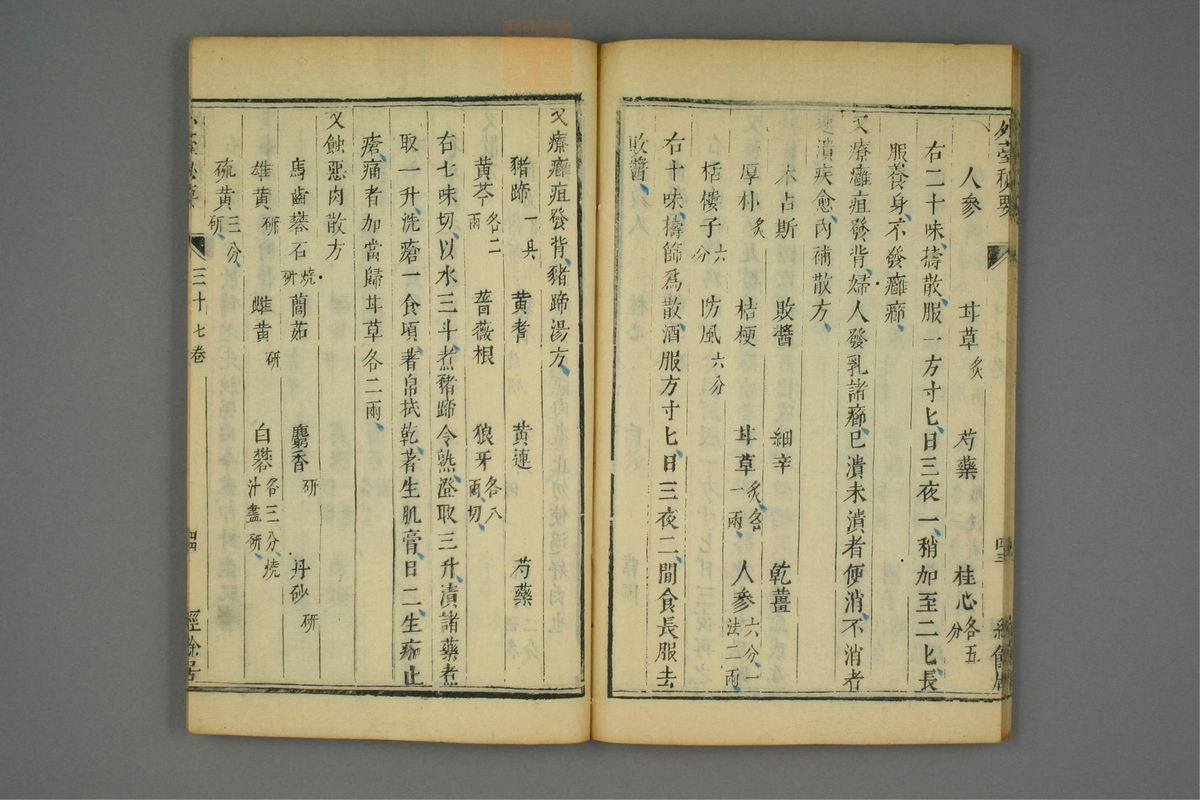 外臺秘要
人參 甘草炙 芍藥 桂心各五分
右二十味擣散服一方寸匕日三夜一稍加至二匕長
服養身不發癰癤
又療癰疽發背婦人發乳諸癤已潰未潰者便消不消者
速潰疾愈內補散方
木占斯 敗醬 細辛 乾薑
厚朴炙 桔梗 甘草炙各一兩 人參六分一法二兩
栝樓子六分 防風六分
右十味擣篩爲散酒服方寸匕日三夜二間食長服去
敗醬
又療癰疽發背豬蹄湯方
豬蹄一具 黃耆 黃連 芍藥
黃芩各二兩 薔薇根 狼牙各八兩切
右七味切以水三斗煮豬蹄令熟澄取三升漬諸藥煮
取一升洗瘡一食頃著帛拭乾著生肌膏日二生痂止
瘡痛者加當歸甘草各二兩
又蝕惡肉散方
馬齒礬石燒研 䕡茹 麝香研 丹砂研
雄黃研 雌黃研 白礬各三分燒汁盡研
硫黃三分研
三十七卷
經餘居